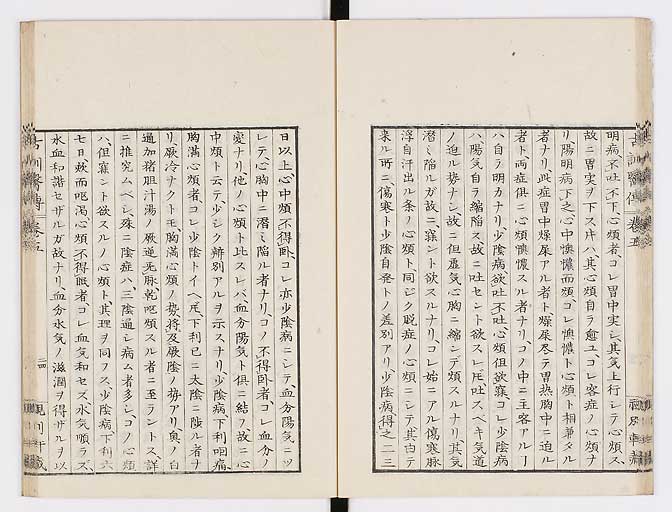 古訓醫傳 卷五
明病不吐不下、心煩者、コレ胃中実シ其気上行シテ心煩ス、
故ニ胃実ヲ下ス片ハ其心煩自ラ愈ユコレ客症ノ心煩ナ
リ、陽明病下之心中懊憹而煩、コレ懊憹ト心煩ト相兼タル
者ナリ此症胃中燥屎アル者ト燥屎尽テ胃熱胸中ニ迫ル
者ト両症俱ニ心煩懊憹スル者ナリ、コノ中ニ主客アルヿ
ハ自ラ明カナリ少陰病、欲吐不吐、心煩但欲寐、コレ少陰病
ハ陽気自ラ縮陥ス、故ニ吐セント欲スレ𪜈吐スベキ気道
ノ迫ル勢ナシ故ニ但虚気心胸ニ縮シテ煩スルナリ、其気
潜ミ陥ルガ故ニ、寐ント欲スルナリ、コレ始ニアル傷寒脉
浮自汗出ル条ノ心煩ト同ジク脱症ノ心煩ニシテ其由テ
来ル所ニ、傷寒ト少陰自発トノ差別アリ、少陰病、得之二三
日以上心中煩不得臥、コレ亦少陰病ニシテ血分陽気ニツ
レテ、心胸中ニ潜ミ陥ル者ナリ、コノ不得臥者、コレ血分ノ
変ナリ他ノ心煩ト此スレバ血分陽気ト俱ニ結フ故ニ心
中煩ト云テ少シク辨別アルヲ示スナリ、少陰病、下利咽痛、
胸満心煩者、コレ少陰トイヘ𪜈、下利已ニ太陰ニ陟ル者ナ
リ、厥冷ナクト𪜈、胸満心煩ノ勢将及厥陰ノ勢アリ、奥ノ白
通加猪胆汁湯ノ厥逆无脉、乾嘔煩スル者ニ至ラントス、詳
ニ推究ムベシ殊ニ陰症ハ三陰通シ病ム者多シ、コノ心煩
ハ、但寐ント欲スルノ心煩ト其理ヲ同フス少陰病、下利六
七日欬而嘔渇、心煩不得眠者、コレ血気和セズ、水気順ラズ、
水血和諧セザルガ故ナリ、血分水気ノ滋潤ヲ得ザルヲ以
古訓醫傳 卷五 三四